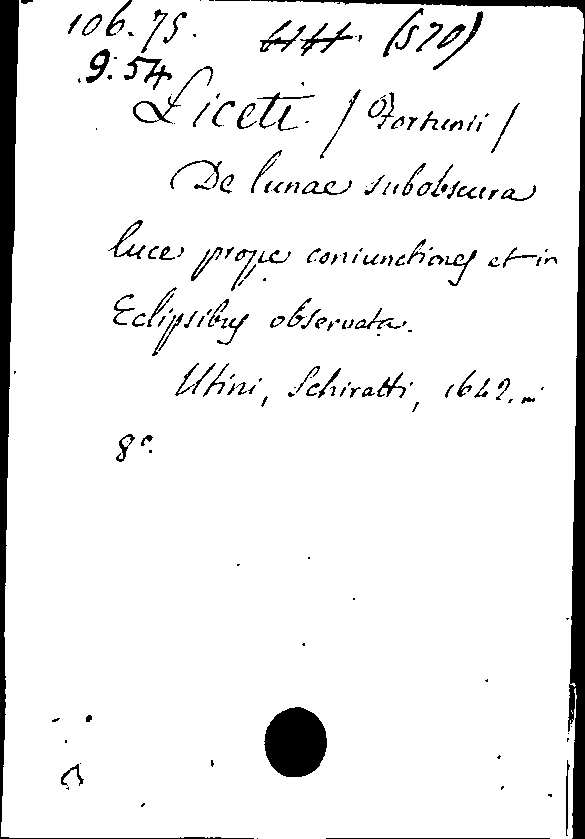 106.75. (570)
9.54
Liceti / Fortunii /
De lunae subobscura
luce prope coniunctiones et in
Eclipsibus observata.
Utini, Schiratti, 1642. in
8°.